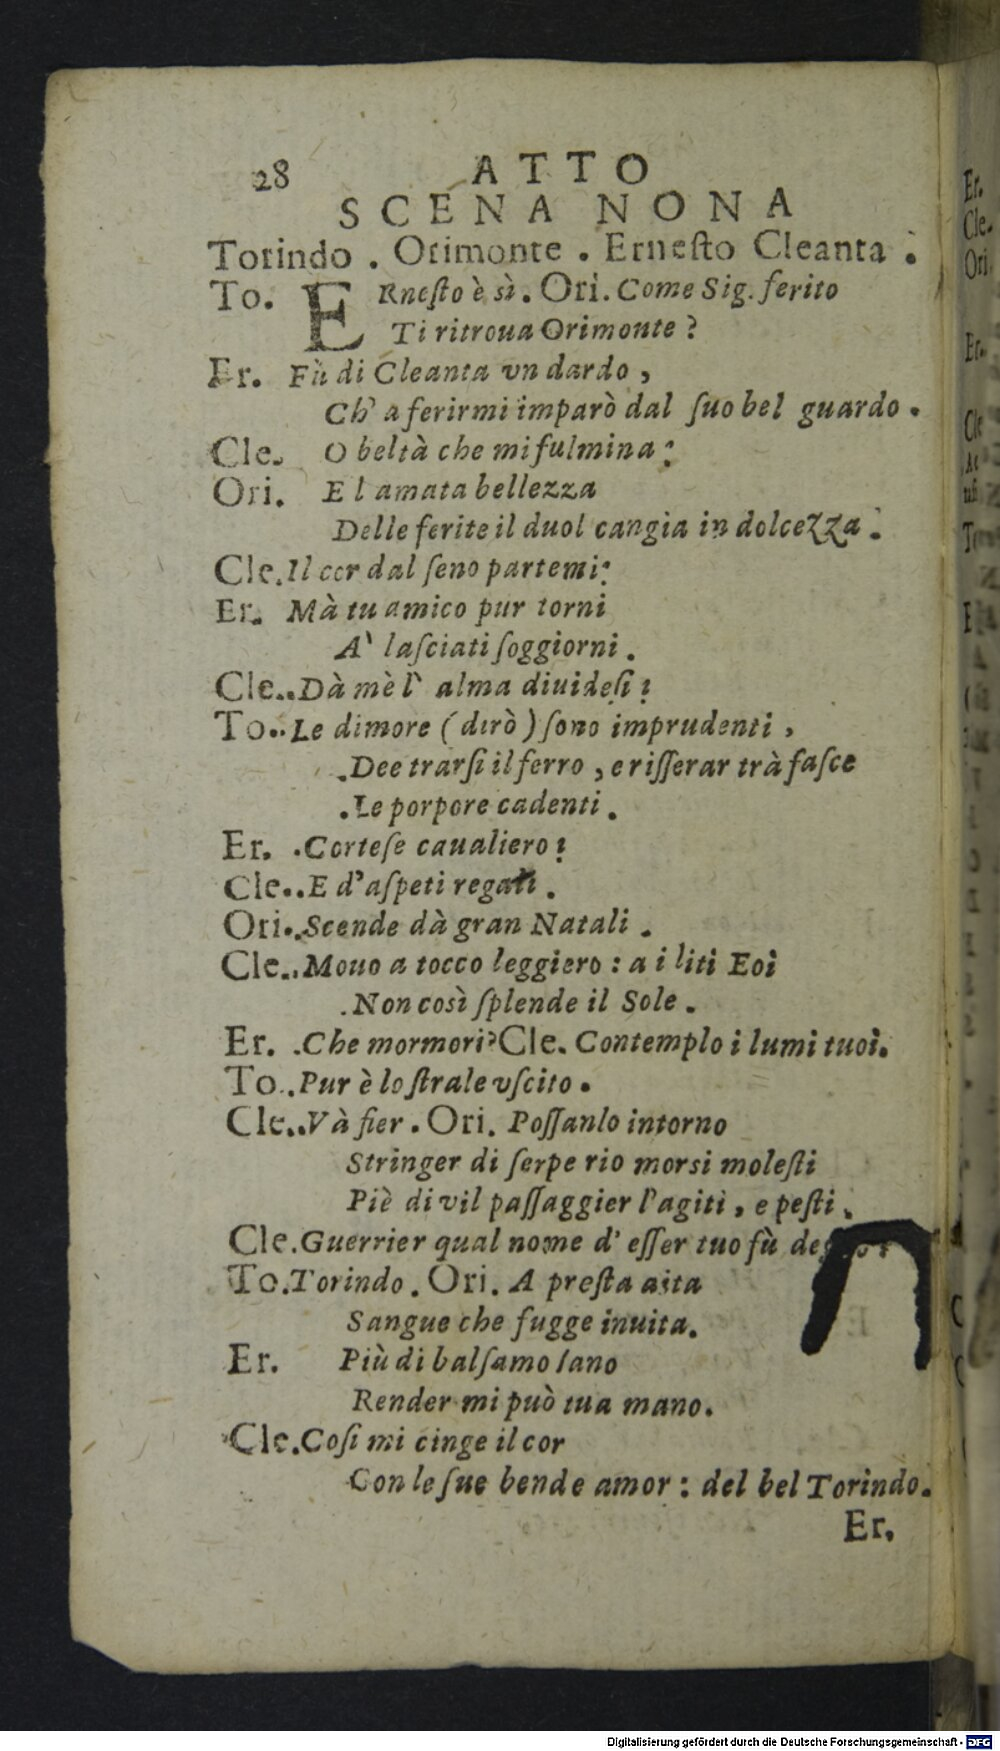 28 ATTO
SCENA NONA
Torindo . Orimonte . Ernesto Cleanta .
To. ERnesto è sì . Ori. Come Sig. ferito
Ti ritroua Orimonte ?
Er. Fù di Cleanta vn dardo ,
Ch' a ferirmi imparò dal suo bel guardo .
Cle. O beltà che mi fulmina :
Ori. E l amata bellezza
Delle ferite il duol cangia in dolcezza .
Cle. Il cor dal seno partemi:
Er. Mà tu amico pur torni
A' lasciati soggiorni .
Cle.. Dà mè l' alma diuidesi !
To.. Le dimore ( dirò ) sono imprudenti ,
.Dee trarsi il ferro , e risserar trà fasce
.Le porpore cadenti .
Er. .Cortese caualiero !
Cle.. E d'aspeti regali .
Ori.. Scende dà gran Natali .
Cle.. Mouo a tocco leggiero : a i liti Eoi
.Non così splende il Sole .
Er. .Che mormori? Cle. Contemplo i lumi tuoi.
To.. Pur è lo strale vscito .
Cle.. Và fier . Ori. Possanlo intorno
Stringer di serpe rio morsi molesti
Piè di vil passaggier l'agiti , e pesti .
Cle. Guerrier qual nome d' esser tuo fù
To. Torindo . Ori. A presta aita
Sangue che fugge inuita.
Er. Più di balsamo sano
Render mi può tua mano.
Cle. Cosi mi cinge il cor
Con le sue bende amor : del bel Torindo.
Er.
Er.
Cle.
Ori
Er.
Cle
To
Digitalisierung gefördert durch die Deutsche Forschungsgemeinschaft - DFG